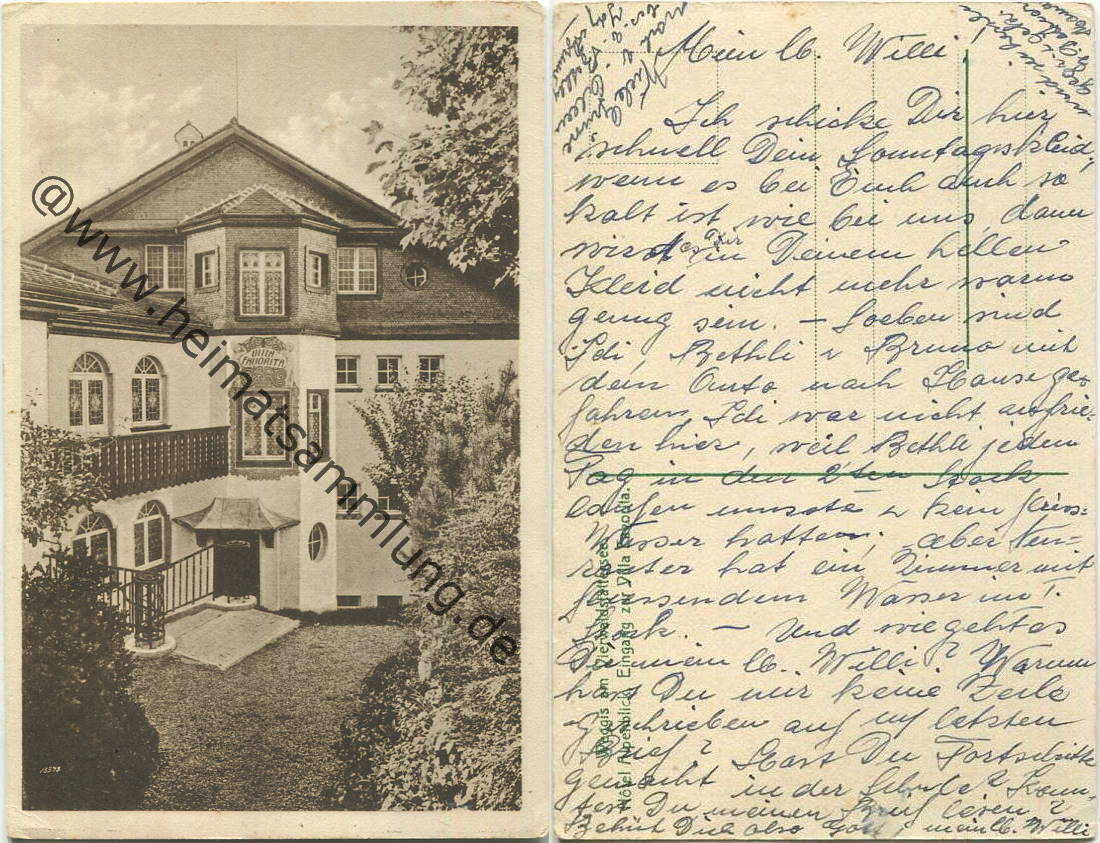 VILLA
FAVORITA
15373
@www.heimatsammlung.de
Mein lb. Willi,
Ich schicke Dir hier
schnell Dein Sonntagskleid,
wenn es bei Euch auch so
kalt ist, wie bei uns, dann
wird in Deinem hellen
Kleid nicht mehr warm
genug sein. – Soeben sind
Idi, Bethli u Bruno mit
dem Auto nach Hause ge-
fahren, Idi war nicht zufrie-
den hier, weil Bethli jeden
Tag in den 2ten Stock
laufen musste u kein fliess.
Wasser hatten, aber
hat ein Zimmer mit
fliessendem Wasser im I.
Stock. – Und wie geht es
Dir mein lb. Willi? Warum
hast Du mir keine Zeile
geschrieben auf letzten
Brief? Hast Du Fortschritte
gemacht in der Schule? Konn-
test Du meinen Brief lesen?
Behüt Dich also Gott, mein lb. Willi
noch viele
Weggis am Vierwaldstättersee.
Hôtel Alpenblick, Eingang zur Villa Favorita.